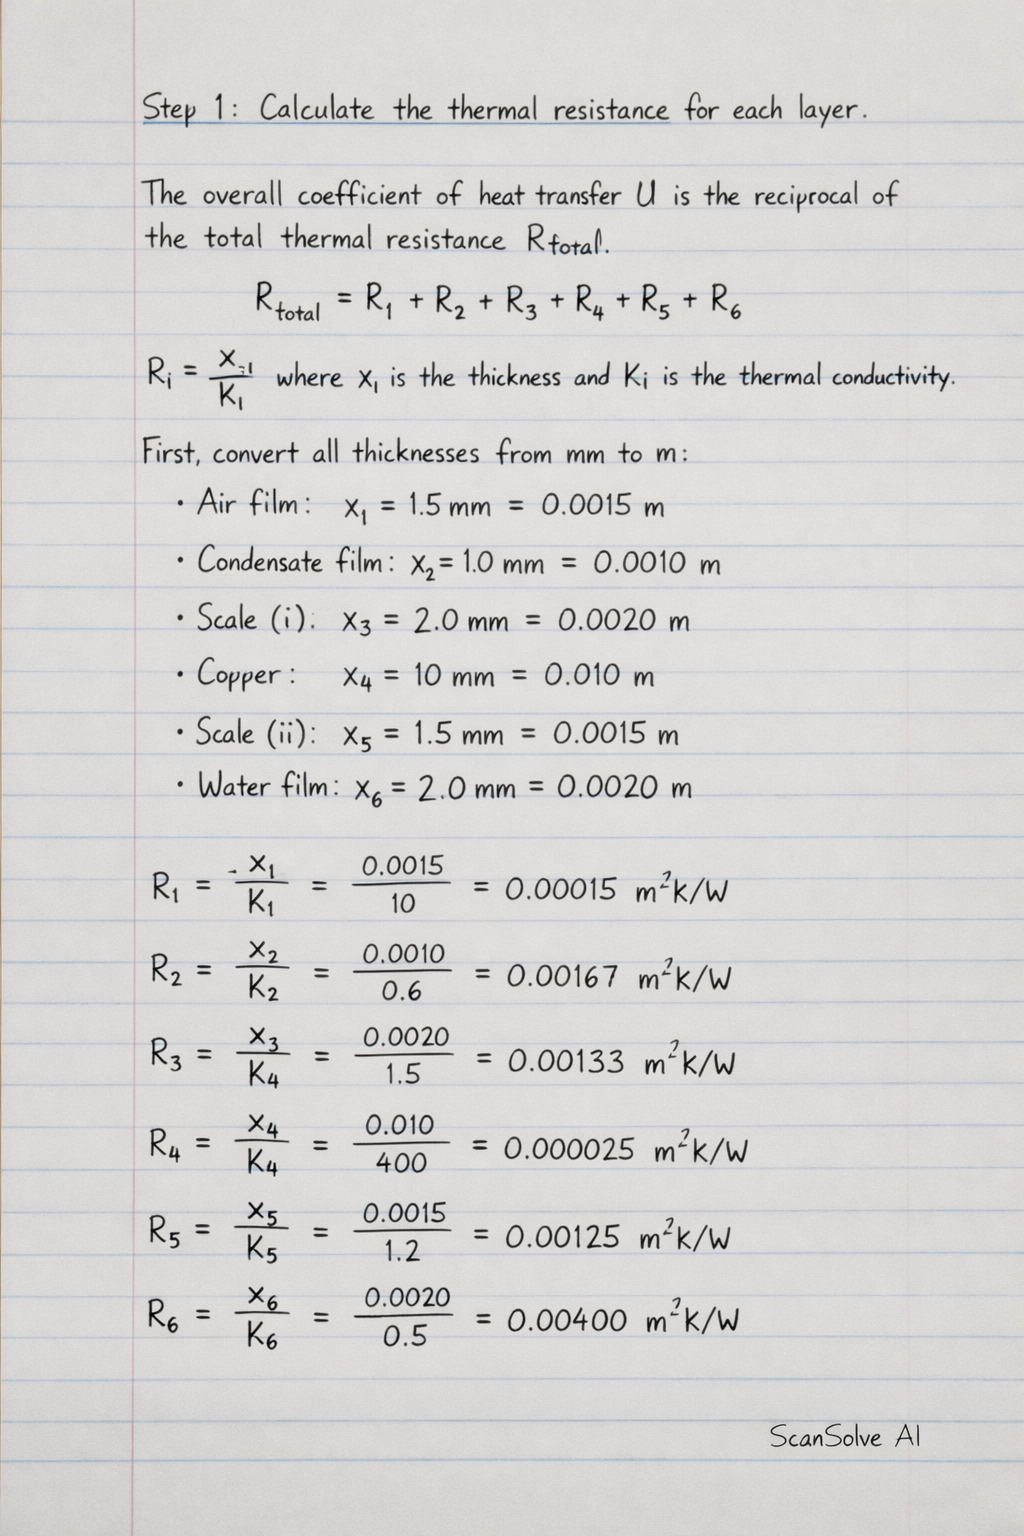 Step 1: Calculate the thermal resistance for each layer.
The overall coefficient of heat transfer U is the reciprocal of
the total thermal resistance R_total.
R_total = R₁ + R₂ + R₃ + R₄ + R₅ + R₆
Rᵢ = x₋₁/K₁ where x₁ is the thickness and Kᵢ is the thermal conductivity.
First, convert all thicknesses from mm to m:
• Air film: x₁ = 1.5 mm = 0.0015 m
• Condensate film: x₂ = 1.0 mm = 0.0010 m
• Scale (i): x₃ = 2.0 mm = 0.0020 m
• Copper: x₄ = 10 mm = 0.010 m
• Scale (ii): x₅ = 1.5 mm = 0.0015 m
• Water film: x₆ = 2.0 mm = 0.0020 m
R₁ = - x₁/K₁ = 0.0015/10 = 0.00015 m²k/W
R₂ = x₂/K₂ = 0.0010/0.6 = 0.00167 m²k/W
R₃ = x₃/K₄ = 0.0020/1.5 = 0.00133 m²k/W
R₄ = x₄/K₄ = 0.010/400 = 0.000025 m²k/W
R₅ = x₅/K₅ = 0.0015/1.2 = 0.00125 m²k/W
R₆ = x₆/K₆ = 0.0020/0.5 = 0.00400 m²k/W
ScanSolve AI